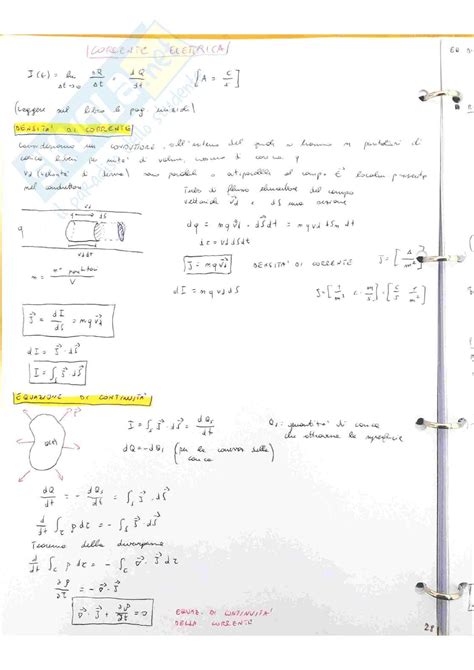 CORRENTE ELETTRICA
I(t) = lim Δt→0 ΔQ/Δt = dQ/dt [A = C/s]
(Leggere sul libro le pag. iniziali)
DENSITA' DI CORRENTE
Consideriamo un CONDUTTORE, all'interno del quale n portatori di
carica liberi per unità di volume, ognuno di carica q
vd (velocità di deriva) sono paralleli o antiparalleli al campo E locale presente
nel conduttore.
Tubo di flusso elementare del campo
vettoriale vd e dS una sezione
vd dS
q
vd dt
dq = nq vd · dS dt = nq vd dSn dt
dτ = vd dS dt
n = n° portatori / V
J = nq vd DENSITA' DI CORRENTE J = [A/m²]
dI = nq vd dS
J = [1/m³ · C · m/s] = [C/s · 1/m²]
J = dI/dS = nq vd
dI = J · dS
I = ∫s J · dS
EQUAZIONE DI CONTINUITA'
Q(t)
I = ∫s J · dS = dQ1/dt
Q1: quantità di carica
che attraversa la superficie
dQ = -dQ1 (per la conserv. della
carica)
dQ/dt = - dQ1/dt = - ∫s J · dS
d/dt ∫τ ρ dτ = - ∫s J · dS
Teorema della divergenza
d/dt ∫τ ρ dτ = - ∫τ ∇ · J dτ
∂ρ/∂t = - ∇ · J
∇ · J + ∂ρ/∂t = 0
EQUAZ. DI CONTINUITA'
DELLA CORRENTE
28